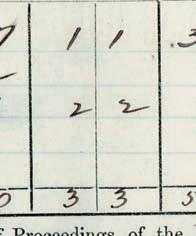 1 1 3
2 2
0 3 3 5
f Proceedings of the